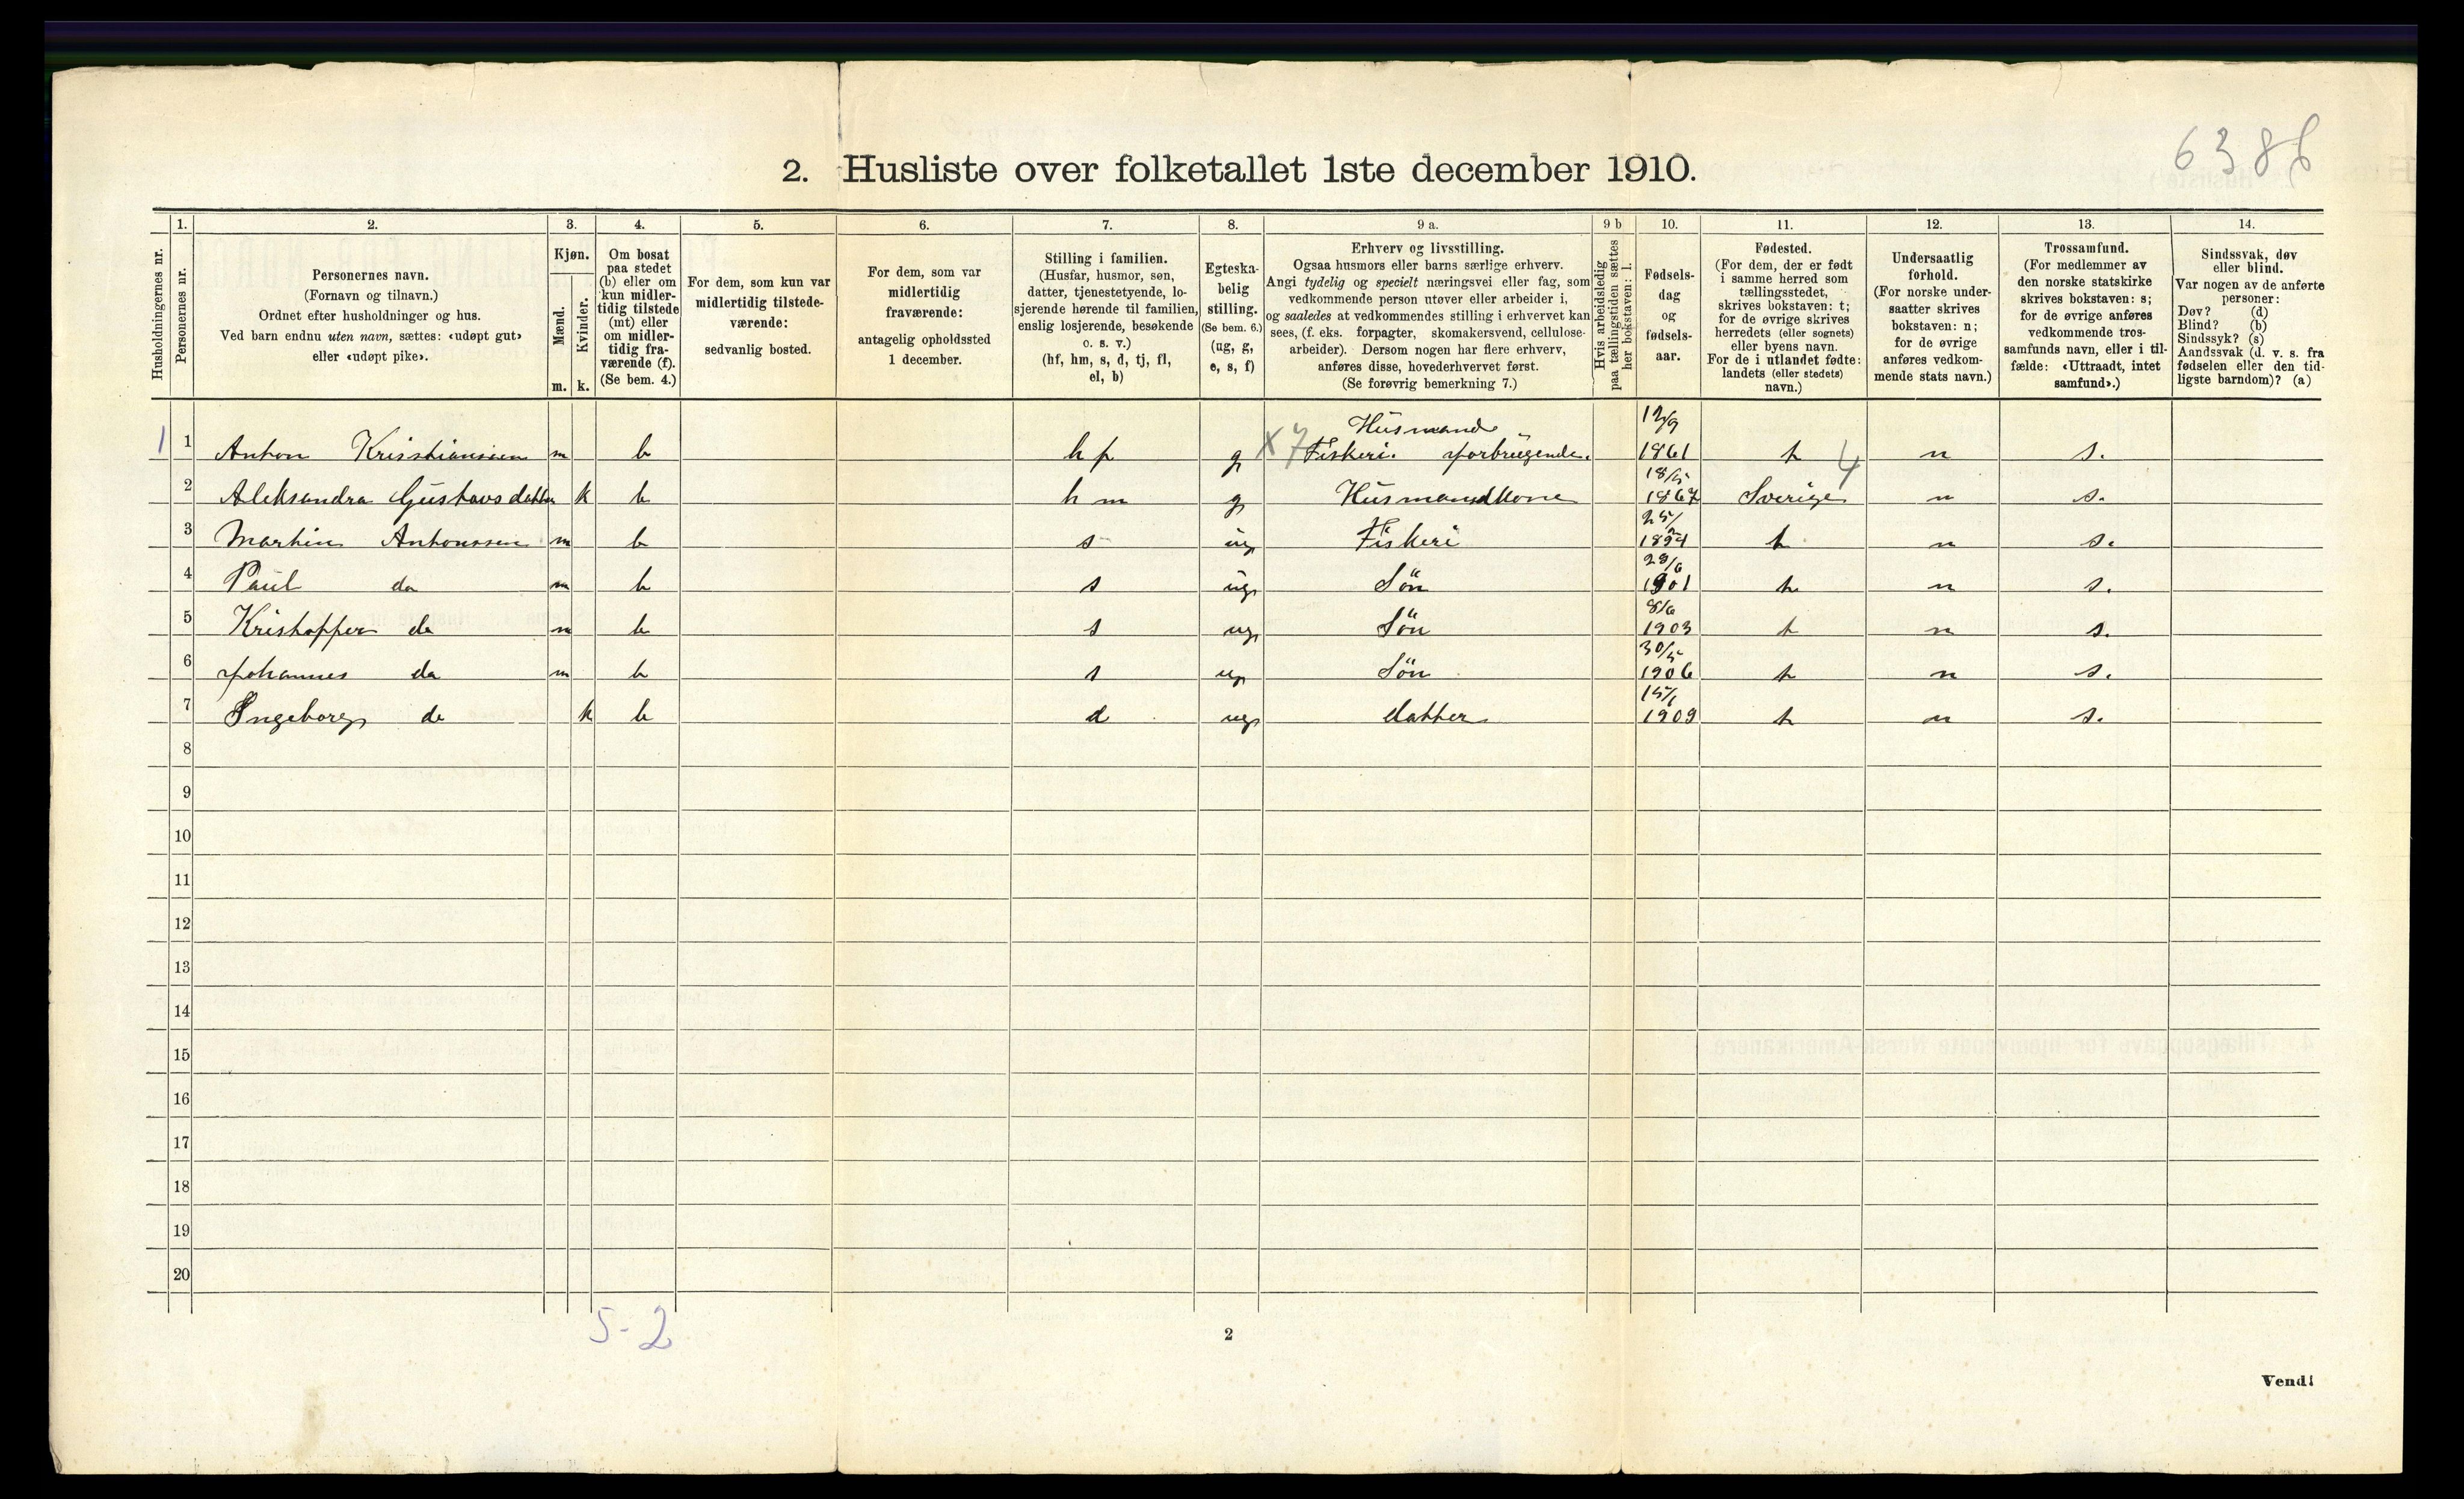 6388
2. Husliste over folketallet 1ste december 1910.
Husholdningernes nr.
1.
Personernes nr.
2.
Personernes navn.
(Fornavn og tilnavn.)
Ordnet efter husholdninger og hus.
Ved barn endnu uten navn, sættes: «udøpt gut»
eller «udøpt pike».
3.
Kjøn.
Mænd.
Kvinder.
m. k.
4.
Om bosat
paa stedet
(b) eller om
kun midler-
tidig tilstede
(mt) eller
om midler-
tidig fra-
værende (f).
(Se bem. 4.)
5.
For dem, som kun var
midlertidig tilstede-
værende:
sedvanlig bosted.
6.
For dem, som var
midlertidig
fraværende:
antagelig opholdssted
1 december.
7.
Stilling i familien.
(Husfar, husmor, søn,
datter, tjenestetyende, lo-
sjerende hørende til familien,
enslig losjerende, besøkende
o. s. v.)
(hf, hm, s, d, tj, fl,
el, b)
8.
Egteska-
belig
stilling.
(Se bem. 6.)
(ug, g,
e, s, f)
9 a.
Erhverv og livsstilling.
Ogsaa husmors eller barns særlige erhverv.
Angi tydelig og specielt næringsvei eller fag, som
vedkommende person utøver eller arbeider i,
og saaledes at vedkommendes stilling i erhvervet kan
sees, (f. eks. forpagter, skomakersvend, cellulose-
arbeider). Dersom nogen har flere erhverv,
anføres disse, hovederhvervet først.
(Se forøvrig bemerkning 7.)
9 b
Hvis arbeidsledig
paa tællingstiden sættes
her bokstaven: l.
10.
Fødsels-
dag
og
fødsels-
aar.
11.
Fødested.
(For dem, der er født
i samme herred som
tællingsstedet,
skrives bokstaven: t;
for de øvrige skrives
herredets (eller sognets)
eller byens navn.
For de i utlandet fødte:
landets (eller stedets)
navn.)
12.
Undersaatlig
forhold.
(For norske under-
saatter skrives
bokstaven: n;
for de øvrige
anføres vedkom-
mende stats navn.)
13.
Trossamfund.
(For medlemmer av
den norske statskirke
skrives bokstaven: s;
for de øvrige anføres
vedkommende tros-
samfunds navn, eller i til-
fælde: «Uttraadt, intet
samfund».)
14.
Sindssvak, døv
eller blind.
Var nogen av de anførte
personer:
Døv? (d)
Blind? (b)
Sindssyk? (s)
Aandssvak (d. v. s. fra
fødselen eller den tid-
ligste barndom)? (a)
Husmand 12/9
1 1 Anton Kristiansen m b hf g X7 Fiskeri. jorbrügende. 1861 t n s.
18/5 4
2 Aleksandra Gustavsdatter k b hm g Husmandkone 1867 Sverige n s.
25/2
3 Martin Antonssen m b s ug Fiskeri 1894 t n s.
28/6
4 Paul do m b s ug Sön 1901 t n s.
8/6
5 Kristoffer do m b s ug Sön 1903 t n s.
30/5
6 Johannes do m b s ug Sön 1906 t n s.
15/1
7 Ingeborg do k b d ug datter 1909 t n s.
8
9
10
11
12
13
14
15
16
17
18
19
20
5-2
2
Vend!